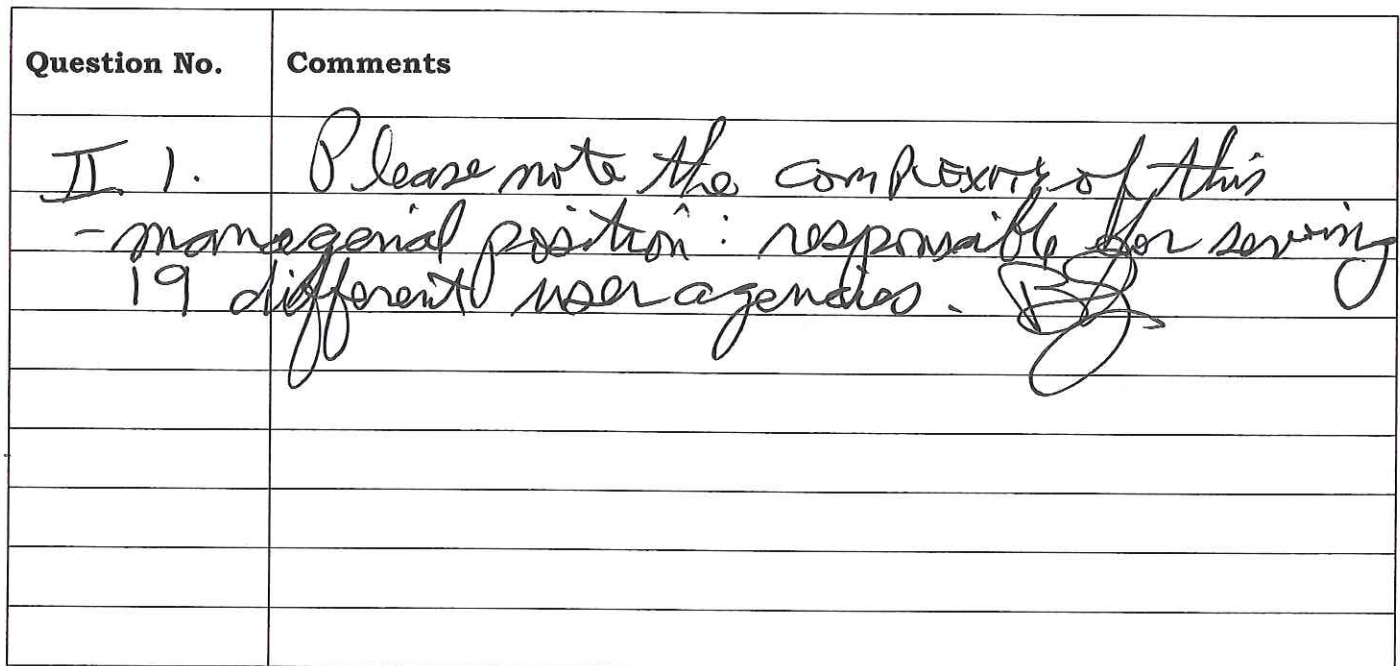 Question No. Comments
II 1. Please note the complexity of this
- managerial position: responsible for serving
19 different user agencies.